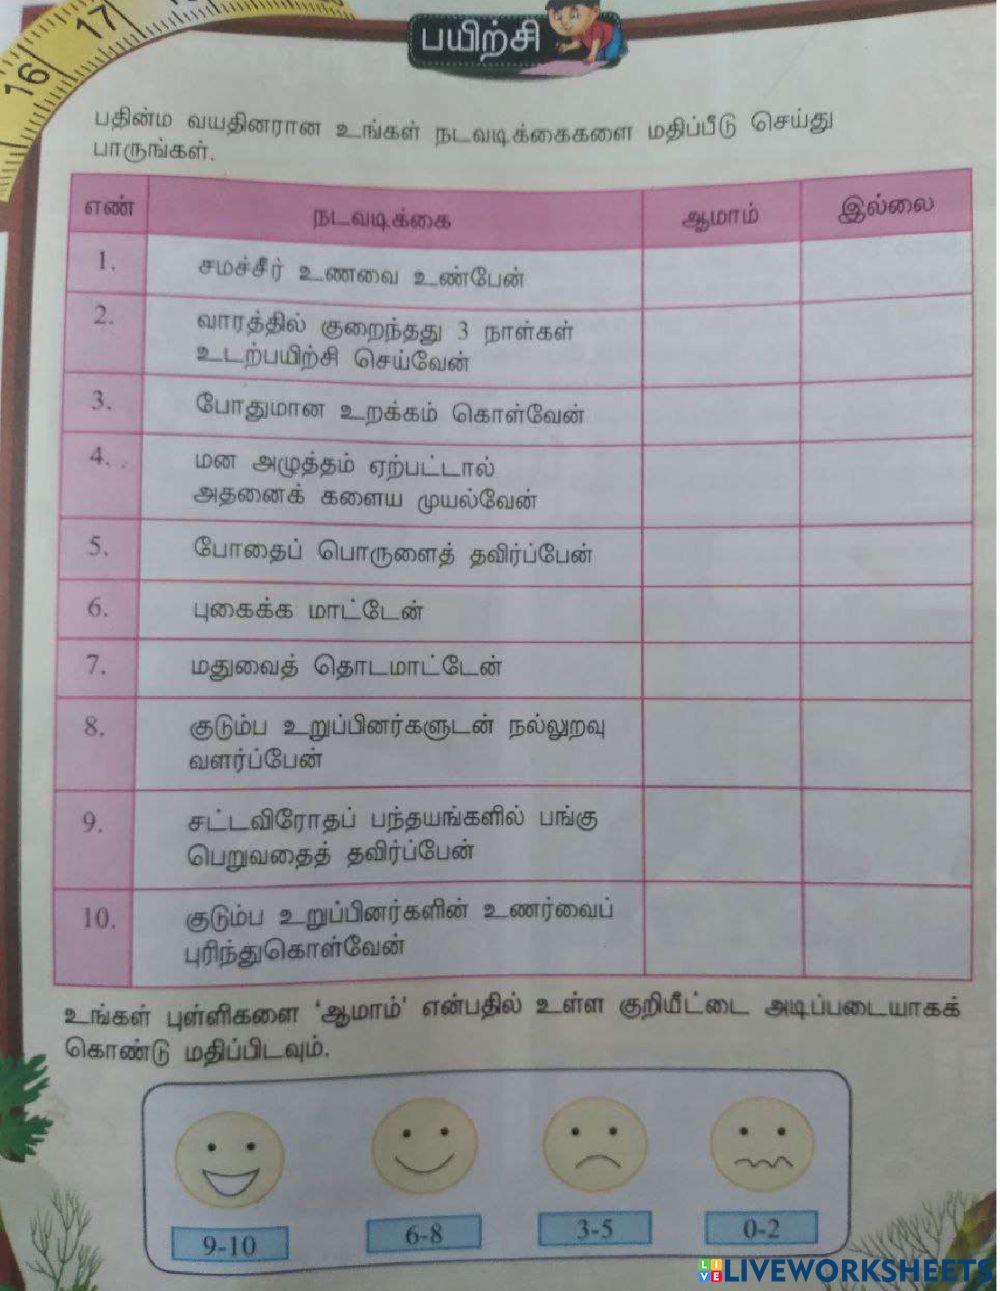 16 17
பயிற்சி
பதின்ம வயதினரான உங்கள் நடவடிக்கைகளை மதிப்பீடு செய்து
பாருங்கள்.
எண் நடவடிக்கை ஆமாம் இல்லை
1. சமச்சீர் உணவை உண்பேன்
2. வாரத்தில் குறைந்தது 3 நாள்கள்
உடற்பயிற்சி செய்வேன்
3. போதுமான உறக்கம் கொள்வேன்
4. மன அழுத்தம் ஏற்பட்டால்
அதனைக் களைய முயல்வேன்
5. போதைப் பொருளைத் தவிர்ப்பேன்
6. புகைக்க மாட்டேன்
7. மதுவைத் தொடமாட்டேன்
8. குடும்ப உறுப்பினர்களுடன் நல்லுறவு
வளர்ப்பேன்
9. சட்டவிரோதப் பந்தயங்களில் பங்கு
பெறுவதைத் தவிர்ப்பேன்
10. குடும்ப உறுப்பினர்களின் உணர்வைப்
புரிந்துகொள்வேன்
உங்கள் புள்ளிகளை ‘ஆமாம்’ என்பதில் உள்ள குறியீட்டை அடிப்படையாகக்
கொண்டு மதிப்பிடவும்.
9-10 6-8 3-5 0-2
LIVE LIVEWORKSHEETS